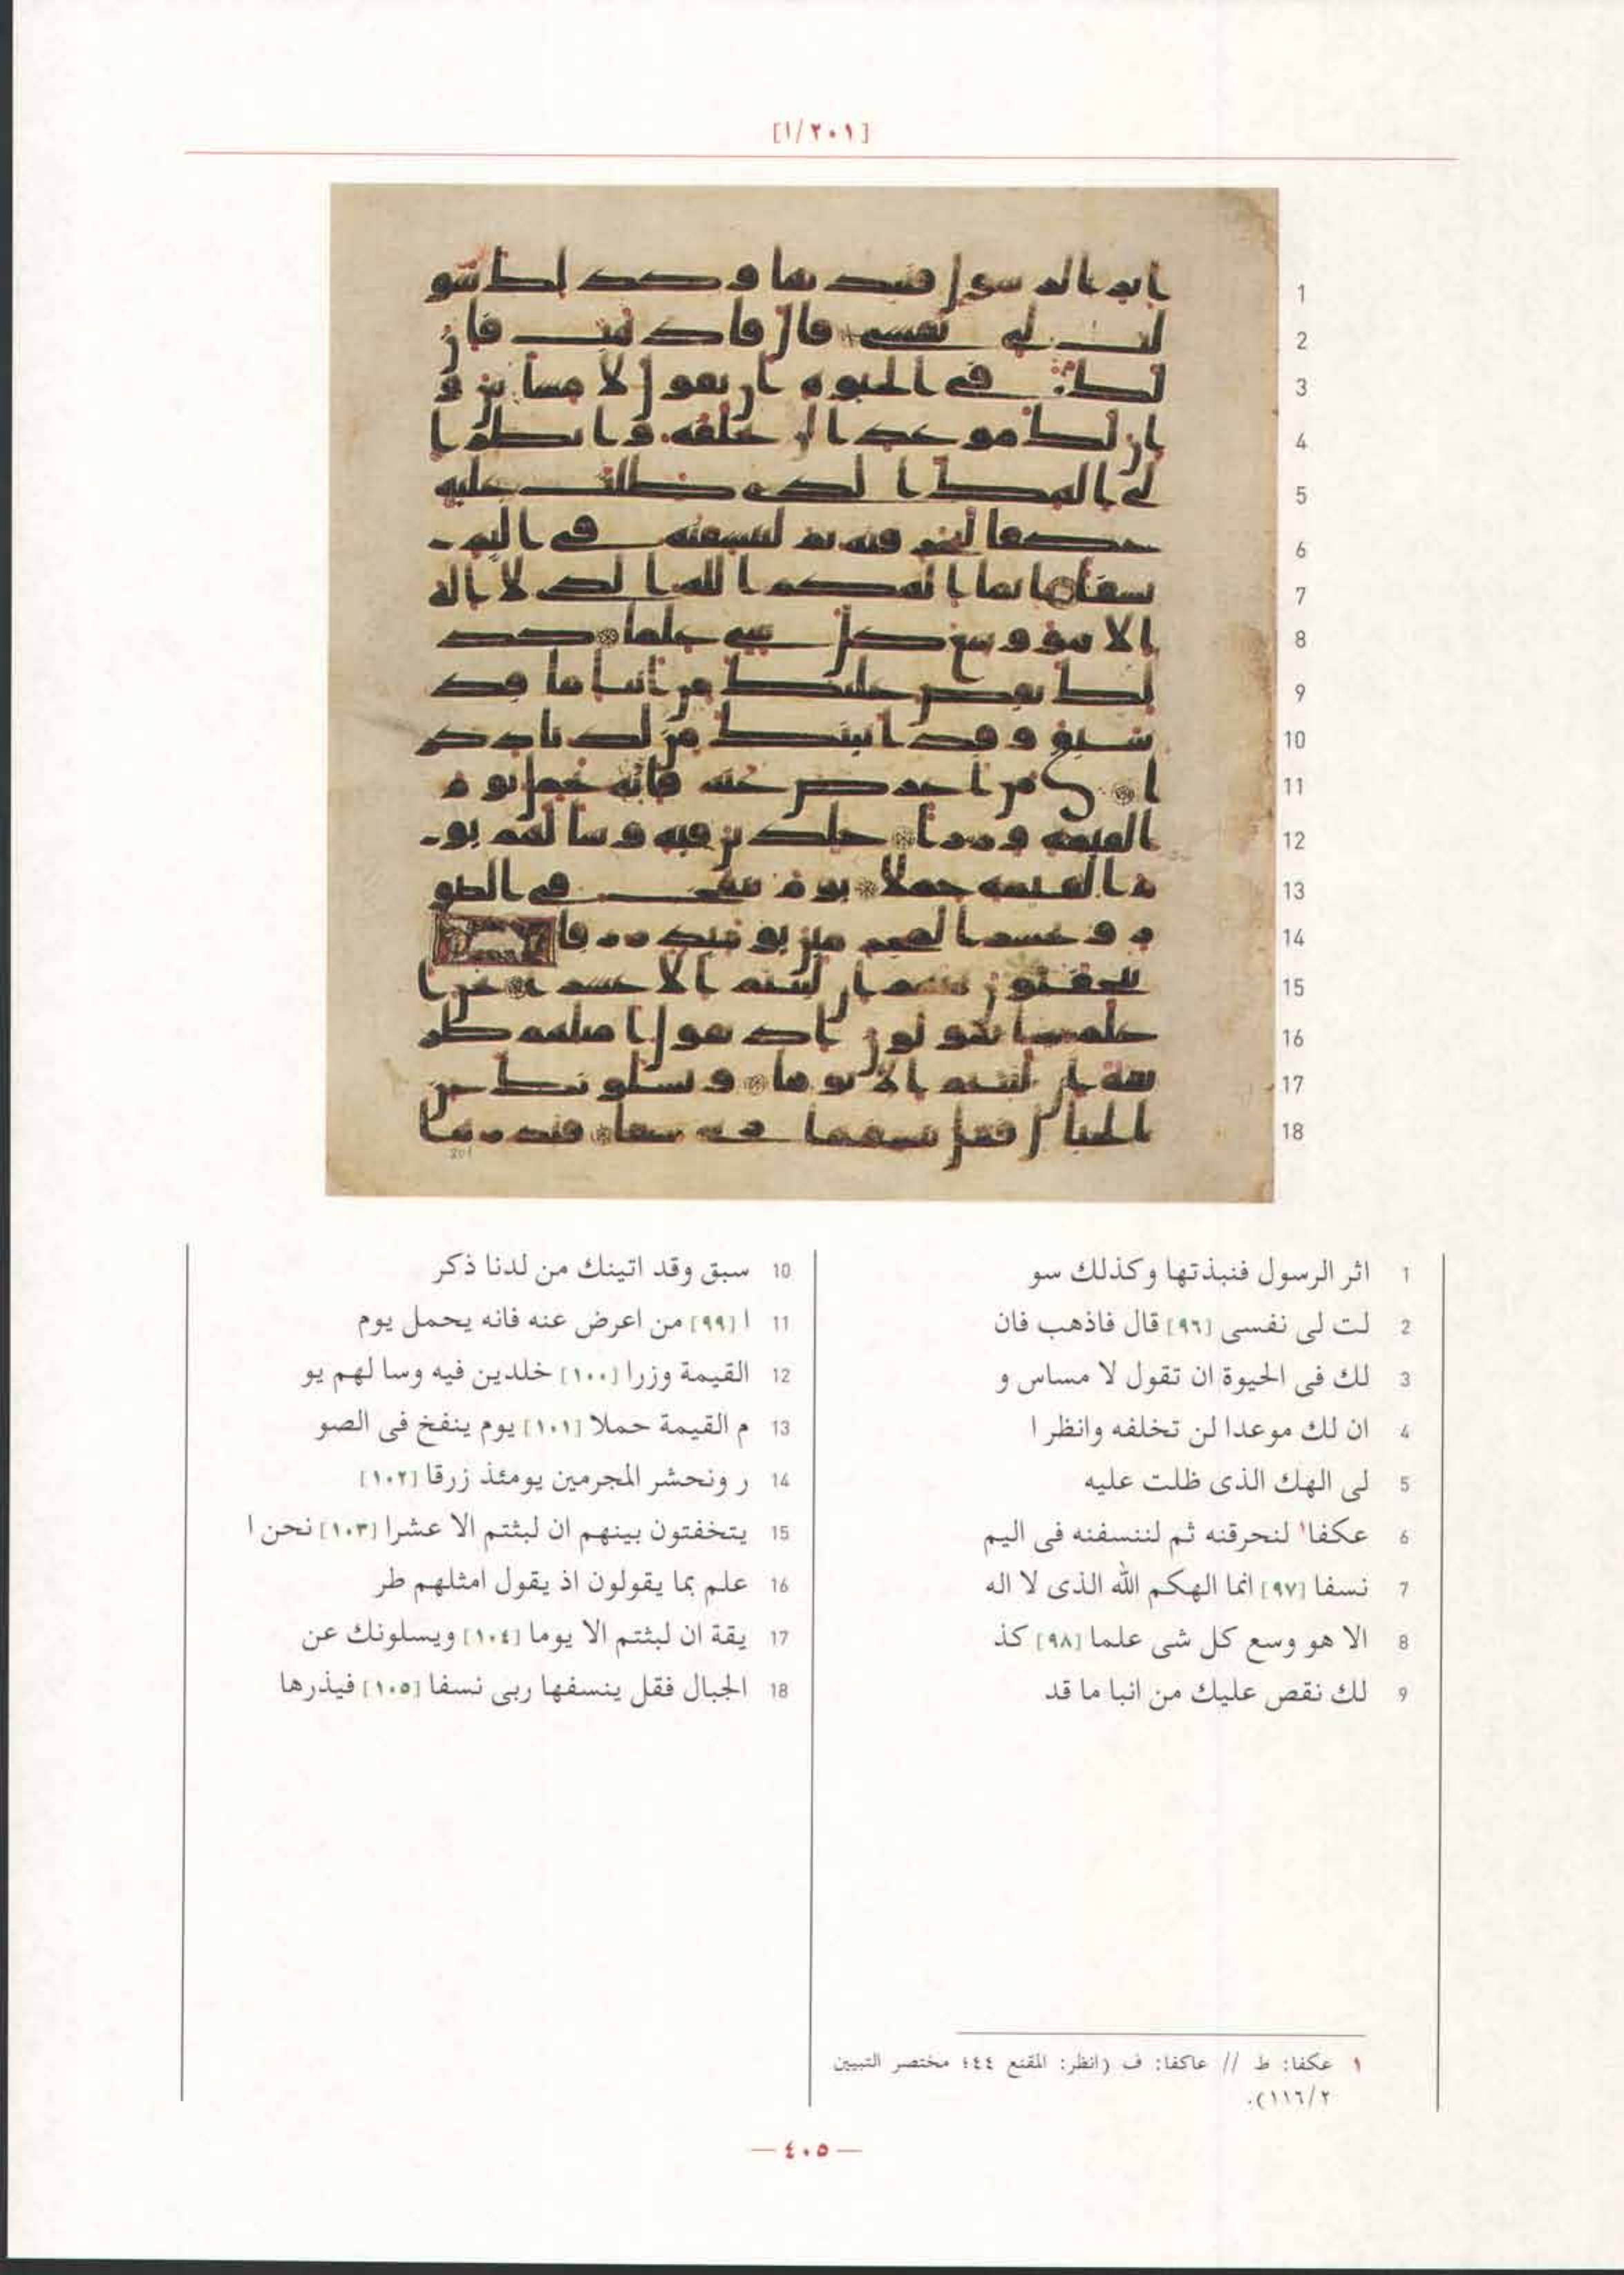 [١/٢٠١]
1 اثر الرسول فنبذتها وكذلك سو
2 لت لى نفسى [٩٦] قال فاذهب فان
3 لك فى الحيوة ان تقول لا مساس و
4 ان لك موعدا لن تخلفه وانظر ا
5 لى الهك الذى ظلت عليه
6 عكفا١ لنحرقنه ثم لننسفنه فى اليم
7 نسفا [٩٧] انما الهكم الله الذى لا اله
8 الا هو وسع كل شى علما [٩٨] كذ
9 لك نقص عليك من انبا ما قد
10 سبق وقد اتينك من لدنا ذكر
11 ا [٩٩] من اعرض عنه فانه يحمل يوم
12 القيمة وزرا [١٠٠] خلدين فيه وسا لهم يو
13 م القيمة حملا [١٠١] يوم ينفخ فى الصو
14 ر ونحشر المجرمين يومئذ زرقا [١٠٢]
15 يتخفتون بينهم ان لبثتم الا عشرا [١٠٣] نحن ا
16 علم بما يقولون اذ يقول امثلهم طر
17 يقة ان لبثتم الا يوما [١٠٤] ويسلونك عن
18 الجبال فقل ينسفها ربى نسفا [١٠٥] فيذرها
١ عكفا: ط // عاكفا: ف (انظر: المقنع ٤٤؛ مختصر التبيين
١١٦/٢).
— ٤٠٥ —